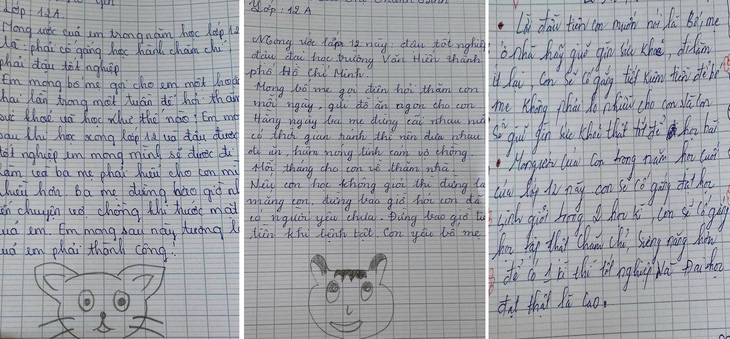 Lớp: 12A
Mong ước của em trong năm học lớp 12
là: phải cố gắng học hành chăm chỉ
phải đậu tốt nghiệp
Em mong bố mẹ gọi cho em một hoặc
hai lần trong một tuần để hỏi thăm
sức khoẻ và học như thế nào! Em mong
sau khi học xong lớp 12 và đậu được
tốt nghiệp em mong mình sẽ được đi
làm và ba mẹ phải hiểu cho con mình
nhiều hơn. Ba mẹ đừng bao giờ nhắc
đến chuyện vợ chồng khi trước mặt
của em. Em mong sau này tương lai
của em phải thành công.
Lớp: 12A
Mong ước lớp 12 này: đậu tốt nghiệp
đậu đại học trường Văn Hiến thành
phố Hồ Chí Minh.
Mong bố mẹ gọi điện hỏi thăm con
mỗi ngày, gửi đồ ăn ngon cho con.
Hàng ngày ba mẹ đừng cãi nhau nữa
có thời gian rảnh thì nên đưa nhau
đi ăn, hâm nóng tình cảm vợ chồng.
Mỗi tháng cho con về thăm nhà.
Nếu con học không giỏi thì đừng la
mắng con, đừng bao giờ hỏi con đã
có người yêu chưa. Đừng bao giờ tiếc
tiền khi bệnh tật. Con yêu bố mẹ
Lời đầu tiên con muốn nói là Bố, mẹ
ở nhà hãy giữ gìn sức khoẻ, đi làm
ít lại. Con sẽ cố gắng tiết kiệm tiền để bố
mẹ không phải lo nhiều cho con và con
sẽ giữ gìn sức khoẻ thật tốt để học bài
Mong ước của con trong năm học cuối
của lớp 12 này con sẽ cố gắng đạt học
sinh giỏi trong 2 học kì, con sẽ cố gắng
học tập thật chăm chỉ, siêng năng hơn
để có 1 kì thi tốt nghiệp và Đại học
đạt thật là cao.